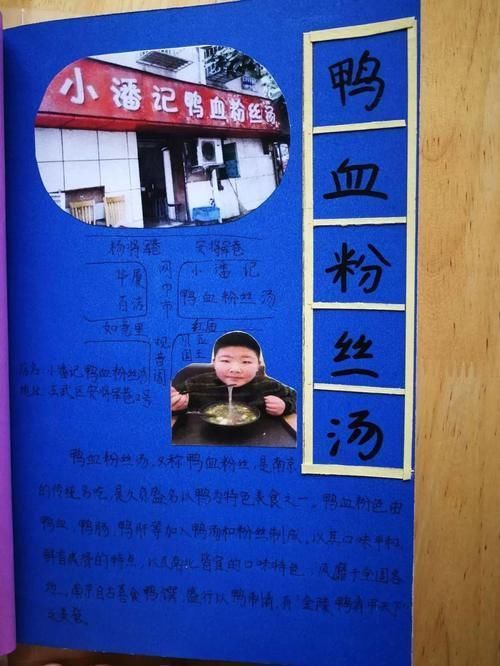 小潘记鸭血粉丝汤
鸭血粉丝汤
杨将军巷 安将军巷
华厦
百洁
网巾市
小潘记
鸭血粉丝汤
如意里
观音阁
店名:小潘记鸭血粉丝汤
地址:玄武区安将军巷2号
鸭血粉丝汤,又称鸭血粉丝,是南京
的传统名吃,是久负盛名以鸭为特色美食之一。鸭血粉色由
鸭血、鸭肠、鸭肝等加入鸭汤和粉丝制成。以其口味平和,
鲜香爽滑的特点,以及南北皆宜的口味特色,风靡于全国各
地。南京自古喜食鸭馔,盛行以鸭制肴,有"金陵鸭肴甲天下"
之美誉。